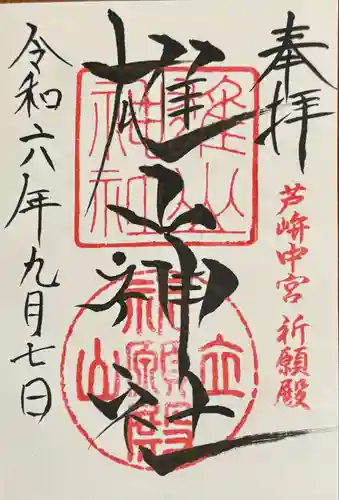 奉拝
芦峅中宮 祈願殿
雄山神社
雄山神社
立山
祈願殿
令和六年九月七日